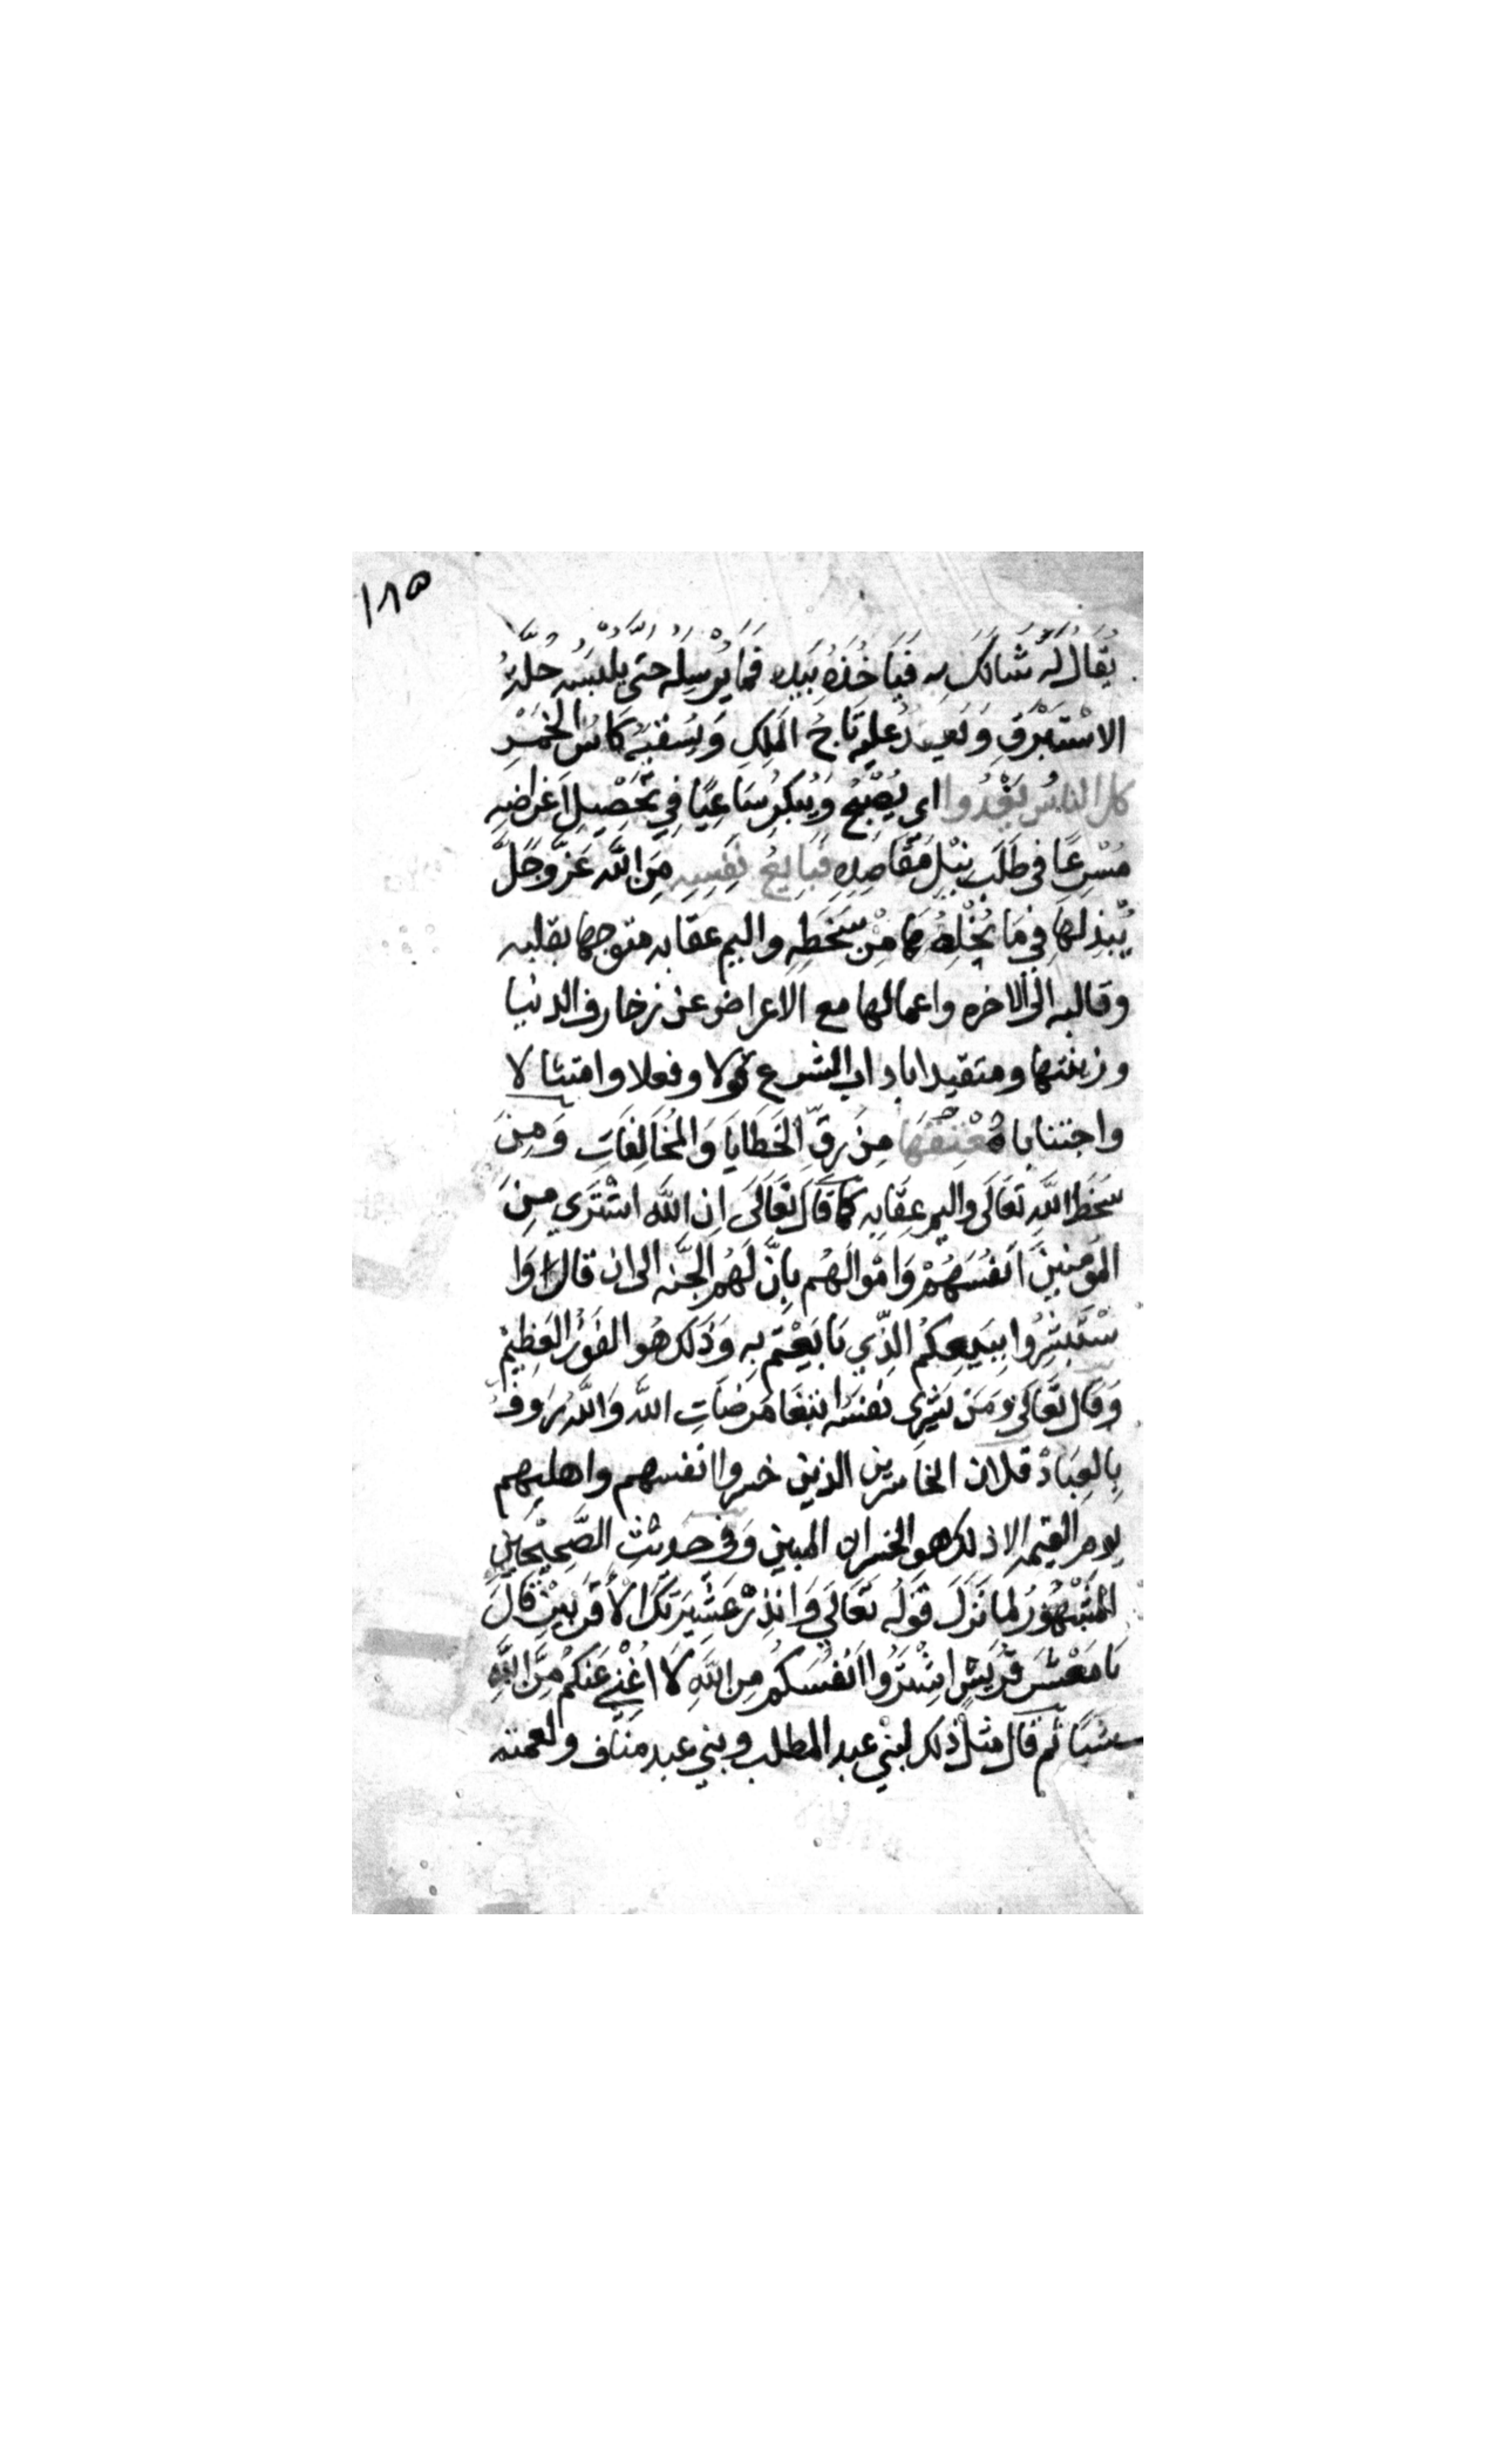 ١٨٥
يُقَالُ لَهُ شَانَكَ بِهِ فَيَاخُذُهُ بِيَدِهِ فَمَا يُرْسِلُهُ حَتَّى يُلْبِسَهُ حُلَّةُ
الاسْتَبْرَقِ وَيعيد عليه تَاجُ الْمَلِكِ وَيُسْقِيَهُ كَاسُ الخَمْرِ
كل الناسُ يَغْدُوا اى يُصْبِحُ وَيُبْكِرُ سَاعِيًا فِي تَحْصِيلِ اَغراضِهِ
مُسْرِعًا فِي طَلَبِ نَيْلِ مَقَاصِدِهِ فَبَايِعُ نَفِسِهِ مِنَ اللَّهِ عَزَّ وَجَلَّ
يُبْذلهَا فِي مَا يُخَلِّصُهَا مِنْ سَخَطِهِ واليم عقابه متوجها بقلبه
وقالبه الى الاخره واعمالها مع الاعراض عن زخارف الدنيا
وزينتها ومتقيدا باداب الشرع قولا وفعلا وامتثالا
واجتنابا فمُعْتِقُهَا مِنَ رِقِّ الخَطَايَا وَالمُخَالِفَاتِ وَمِنَ
سَخَطِ اللَّهِ تَعَالَى واليم عِقَابِهِ كما قَالَ تَعَالَى اِن اللَّه اشْتَرَي مِنَ
المُؤمِنِينَ اَنفُسَهُمْ وَامْوالَهُم بِانَّ لَهُمُ الجَنَّه الى ان قال فَا
سْتَبْشِرُوا بِبَيعِكُمُ الَّذِي بَايَعْتُم بِهِ وَذَلكَ هُوَ الفَوْزُ العَظِيمُ
وَقَال تَعَالَى وَمَنْ يَشرِى نَفْسَهُ ابْتِغَا مَرضَاتِ اللَّه وَاللَّهُ رَوفُ
بِالعِبَادْ قل ان الخاسرين الذين خسروا انفسهم واهليهم
يوم القيمه الا ذلك هو الخسران المبين وَفي حديثِ الصَّحِيحَينِ
المَشْهُورُ لما نَزَلَ قَوْلَهُ تَعَالَي وَانذِرْ عَشِيرَتَكَ الاَقرَبِيْنَ قَالَ
يَا مَعْشَرَ قُرَيْشٍ اشْتَرُوا اَنْفُسَكُم مِنَ اللَّهِ لَا اُغْنِي عَنكُم مِنَ اللَّهِ
شيئًا ثم قال مثل ذلك لبني عبد المطلب وبني عبد مناف ولعمته